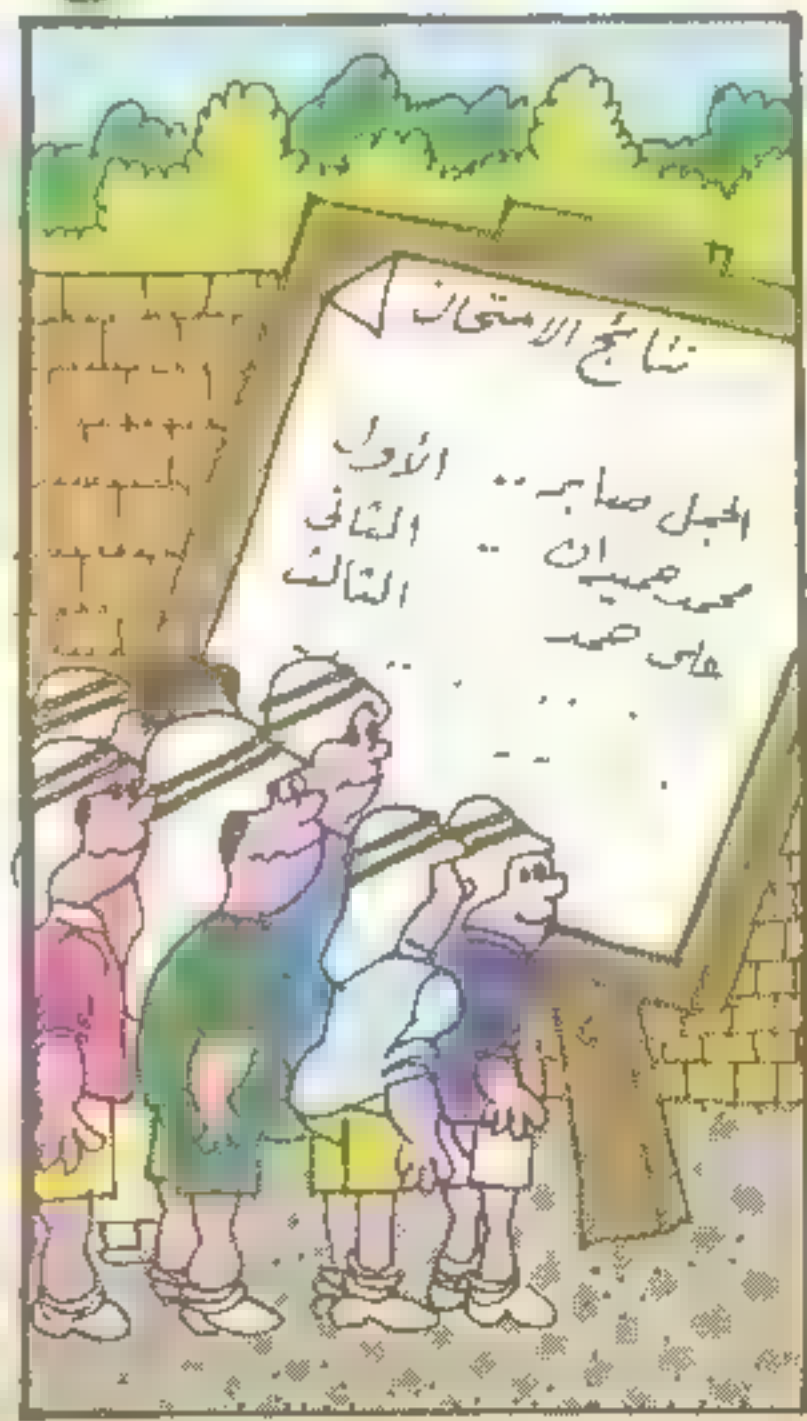 نتائج الامتحان
الجبل صابر .. الأول
محمد صيدان .. الثاني
على حمد الثالث